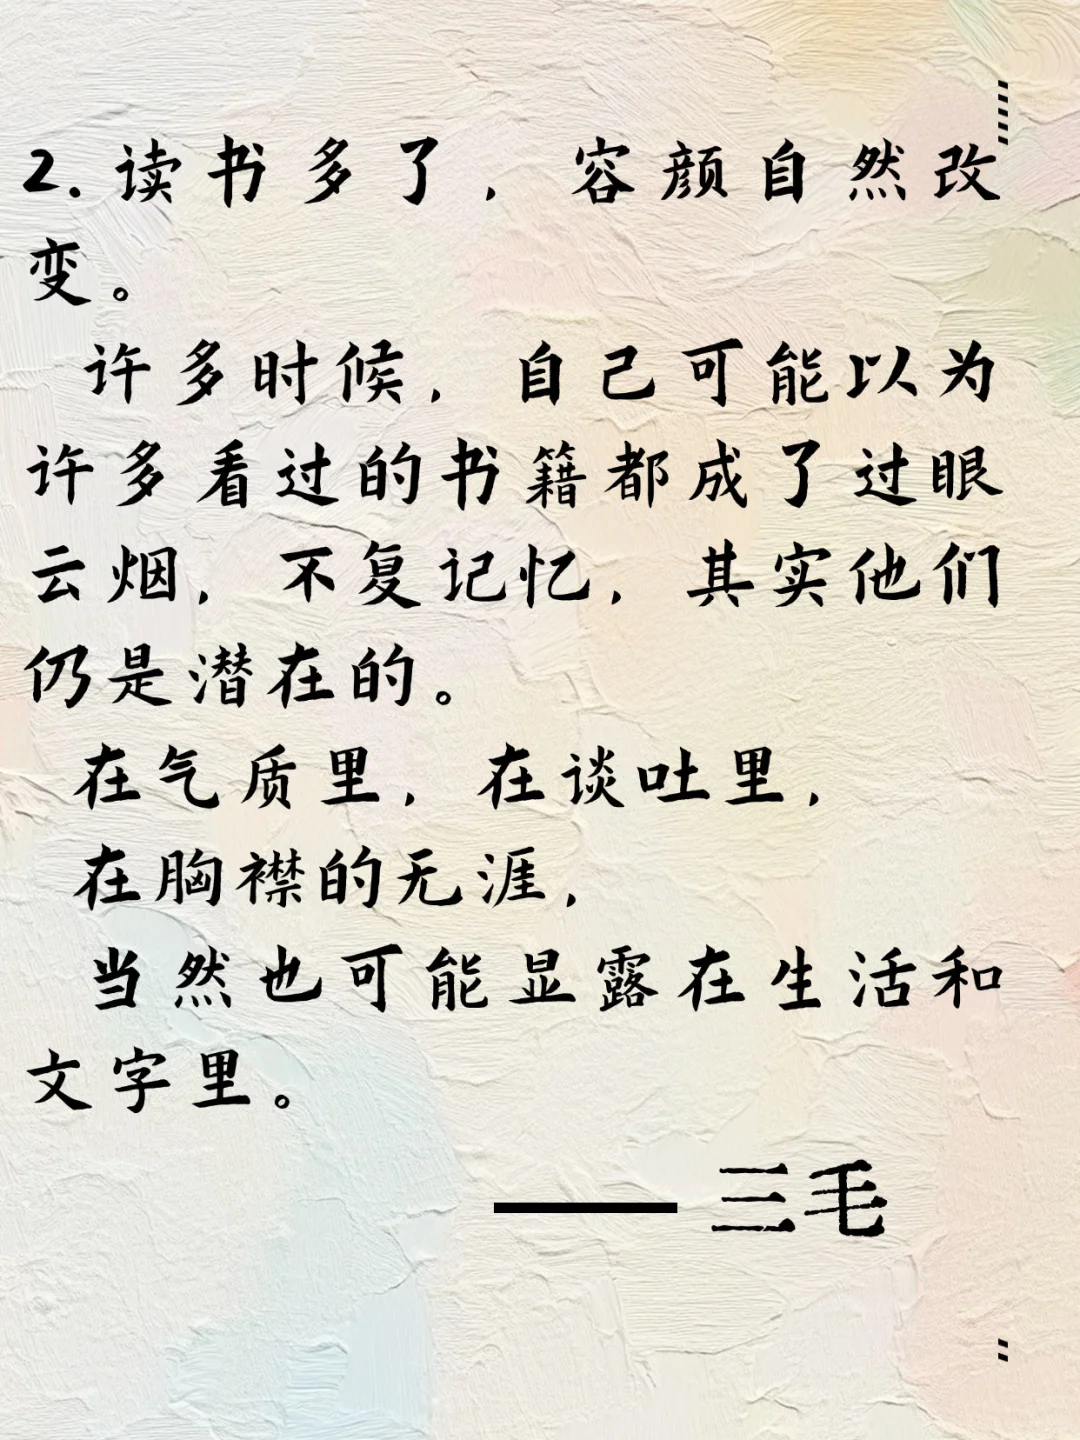 2.读书多了，容颜自然改
变。
许多时候，自己可能以为
许多看过的书籍都成了过眼
云烟，不复记忆，其实他们
仍是潜在的。
在气质里，在谈吐里，
在胸襟的无涯，
当然也可能显露在生活和
文字里。
—— 三毛